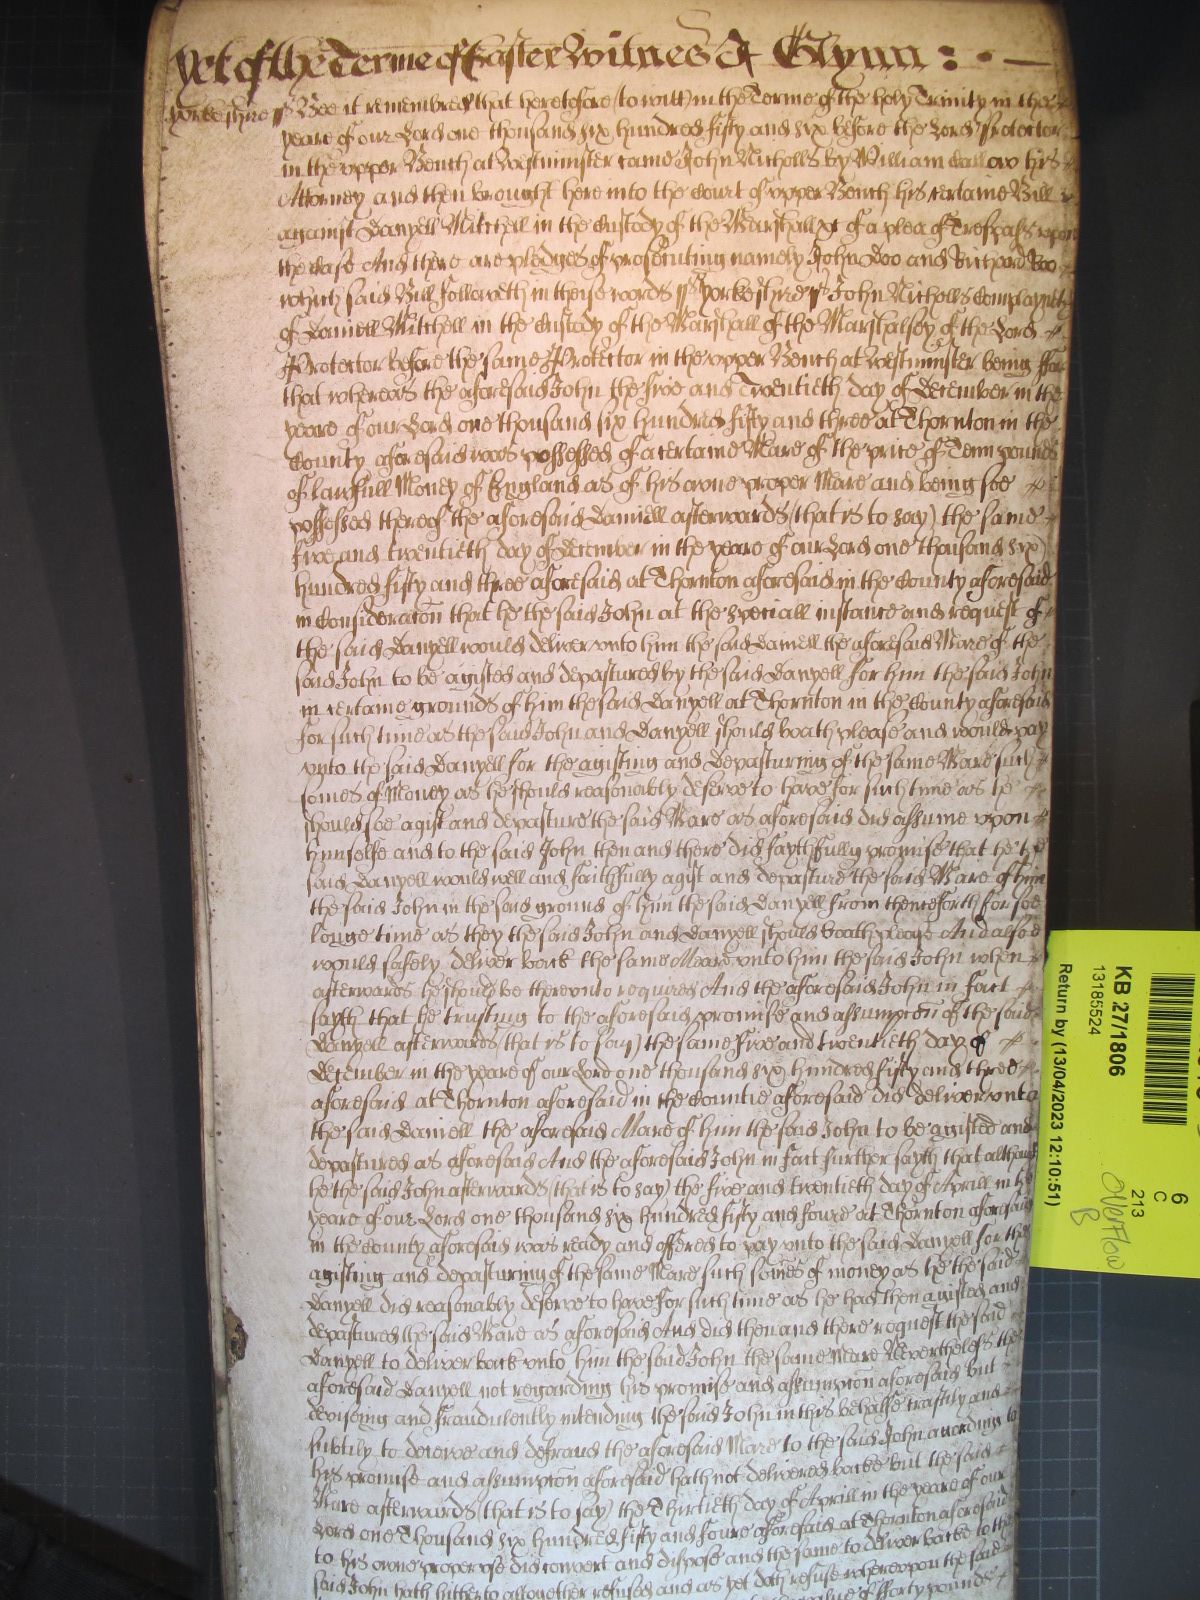 Yet of the Terme of Easter Witnes J Glynn :
Yorkeshire ss Bee it remembred that heretofore (to witt) in the Terme of the holy Trinity in the
yeare of our Lord one thousand six hundred fifty and six before the Lord Protector
in the upper Bench at Westminster came John Nicholls by William his
Attorney and then brought here into the Court of upper Bench his certaine Bill
against Danyell Mitchell in the Custody of the Marshall &c of a plea of Trespass upon
the Case And there are pledges of prosecuting namely John Doo and Richard Roo
which said Bill followeth in these words ss Yorkeshire ss John Nicholls Complayneth
of Daniell Mitchell in the Custody of the Marshall of the Marshalsey of the Lord
Protector before the same Protector in the upper Bench at Westminster being ffor
that whereas the aforesaid John the five and Twentieth day of December in the
yeare of our Lord one thousand six hundred fifty and three at Thornton in the
County aforesaid was possessed of a certaine Mare of the price of Tenn pounds
of lawfull Money of England as of his owne proper Mare and being soe
possessed thereof the aforesaid Daniell afterwards (that is to say) the same
five and twentieth day of December in the yeare of our Lord one thousand six
hundred fifty and three aforesaid at Thornton aforesaid in the County aforesaid
in Consideracon that he the said John at the speciall instance and request of
the said Danyell would deliver unto him the said Daniell the aforesaid Mare of the
said John to be agisted and depastured by the said Danyell for him the said John
in certaine grounds of him the said Danyell at Thornton in the County aforesaid
for such time as the said John and Danyell should boath please and would pay
unto the said Danyell for the agisting and Depasturing of the same Mare such
somes of Money as he should reasonably deserve to have for such time as he
should soe agist and depasture the said Mare as aforesaid did assume upon
himselfe and to the said John then and there did faythfully promise that he the
said Danyell would well and faithfully agist and depasture the said Mare of him
the said John in the said ground of him the said Danyell from thenceforth for soe
longe time as they the said John and Danyell should boath please And alsoe
would safely deliver back the same Meare unto him the said John when
afterwards he should be thereunto required And the aforesaid John in fact
sayth that he trusting to the aforesaid promise and assumpcon of the said
Danyell afterwards (that is to say) the same five and twentieth day of
December in the yeare of our Lord one thousand six hundred fifty and three
aforesaid at Thornton aforesaid in the Countie aforesaid did deliver unto
the said Daniell the aforesaid Mare of him the said John to be agisted and
depastured as aforesaid And the aforesaid John in fact further sayth that although
he the said John afterwards (that is to say) the five and twentieth day of Aprill in the
yeare of our Lord one thousand six hundred fifty and fowre at Thornton aforesaid
in the County aforesaid was ready and offered to pay unto the said Danyell for the
agisting and depasturing of the same Mare such somes of money as he the said
Danyell did reasonably deserve to have for such time as he had then agisted and
depastured the said Mare as aforesaid And did then and there request the said
Danyell to deliver back unto him the said John the same Mare Nevertheless the
aforesaid Danyell not regarding his promise and assumpcon aforesaid but
deviseing and fraudulently intending the said John in this behalfe craftily and
subtily to deceive and defraud the aforesaid Mare to the said John according to
his promise and assumpcon aforesaid hath not delivered backe but the said
Mare afterwards (that is to say) the Thirtieth day of Aprill in the yeare of our
Lord one Thousand six hundred fifty and foure aforesaid at Thornton aforesaid
to his owne proper use did convert and dispose and the same to deliver backe to the
said John hath hitherto altogether refused and as yet doth refuse whereupon the said
value of fforty pounds
KB 27/1806
13185524
Return by (13/04/2023 12:10:51)
6
C
213
Overflow
B